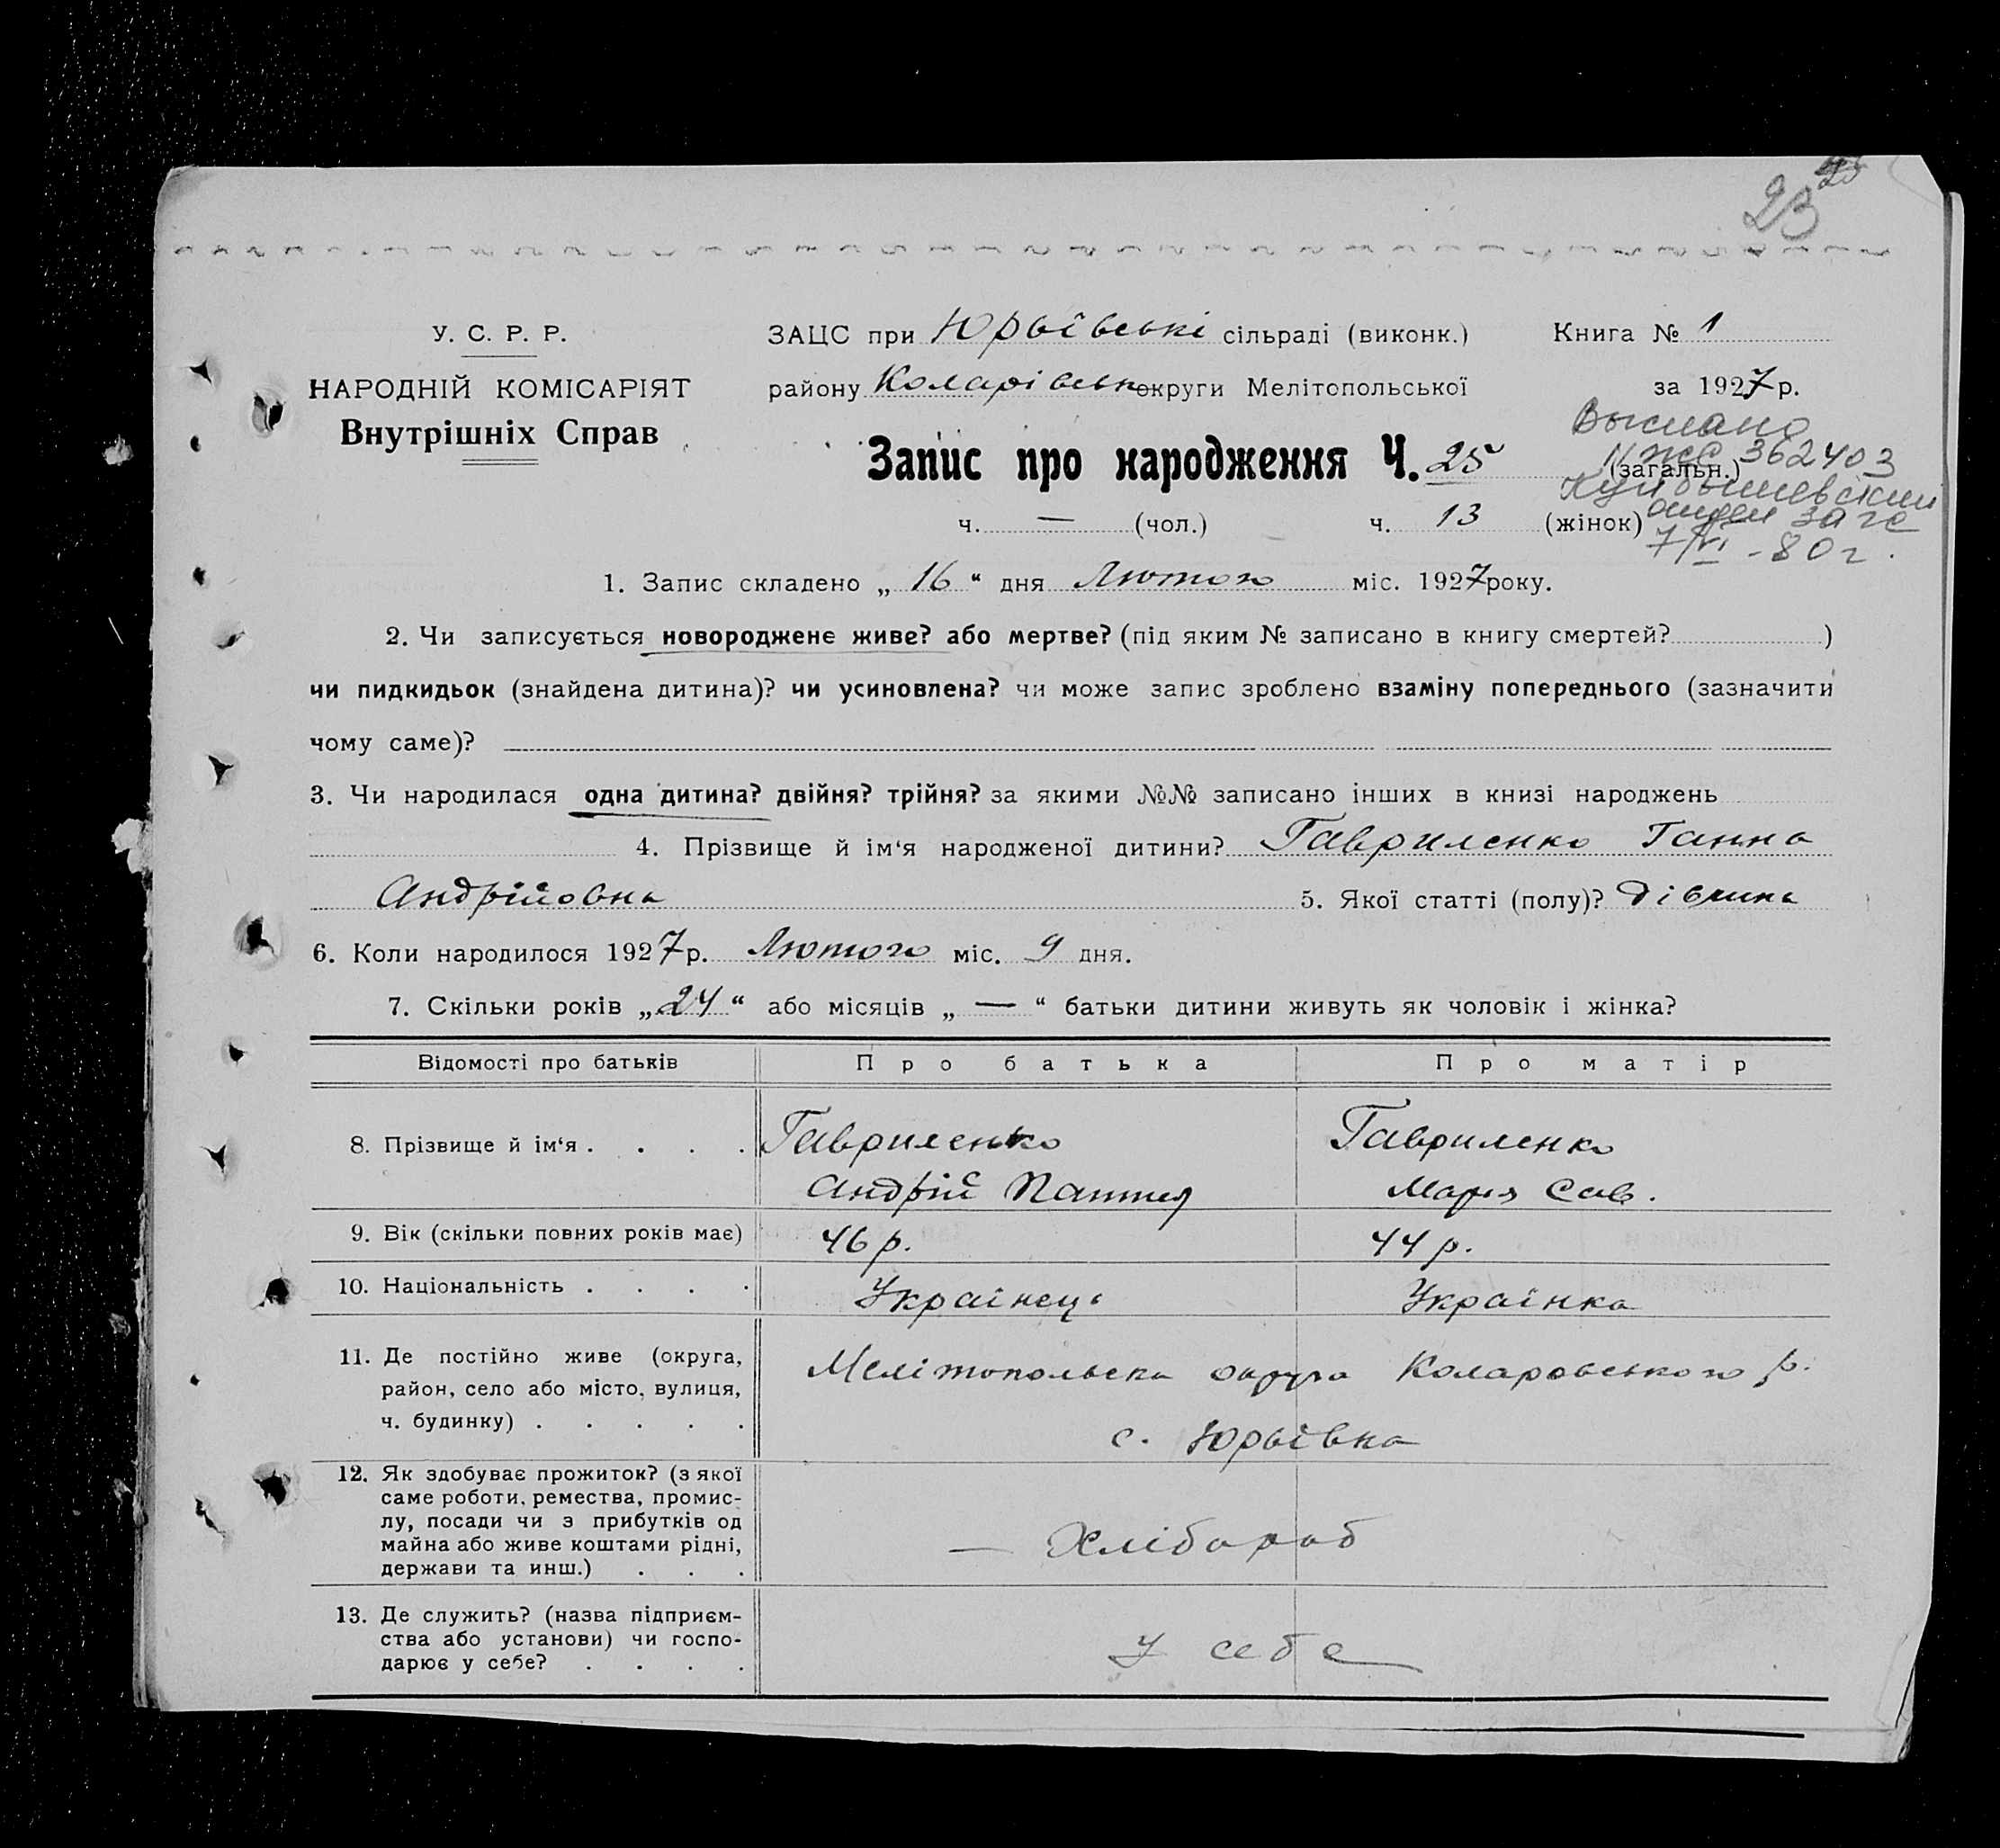 23
У. С. Р. Р.
НАРОДНІЙ КОМІСАРІЯТ
Внутрішніх Справ
ЗАЦС при Юрьївські сільраді (виконк.)
району Коларівськ округи Мелітопольської
Книга № 1
за 1927 р.
Выслано
ЖС 362403
Куйбышевским
загс
7/VI - 80 г.
Запис про народження Ч. 25 (загальн.)
ч. — (чол.) ч. 13 (жінок)
1. Запис складено „16“ дня Лютого міс. 1927 року.
2. Чи записується новороджене живе? або мертве? (під яким № записано в книгу смертей? )
чи пидкидьок (знайдена дитина)? чи усиновлена? чи може запис зроблено взаміну попереднього (зазначити
чому саме)?
3. Чи народилася одна дитина? двійня? трійня? за якими №№ записано інших в книзі народжень
4. Прізвище й ім‘я народженої дитини? Гавриленко Ганна
Андрійовна 5. Якої статті (полу)? дівчина
6. Коли народилося 1927 р. Лютого міс. 9 дня.
7. Скільки років „24“ або місяців „—“ батьки дитини живуть як чоловік і жінка?
Відомості про батьків Про батька Про матір
8. Прізвище й ім‘я . . . . Гавриленко Гавриленко
Андрій Марія Сав.
9. Вік (скільки повних років має) 46 р. 44 р.
10. Національність . . . . Українець Українка
11. Де постійно живе (округа,
район, село або місто, вулиця,
ч. будинку) . . . . .
Мелітопольська округа Коларовського р.
с. Юрьївка
12. Як здобуває прожиток? (з якої
саме роботи, ремества, промис-
лу, посади чи з прибутків од
майна або живе коштами рідні,
держави та инш.) . . .
— Хлібороб
13. Де служить? (назва підприєм-
ства або установи) чи госпо-
дарює у себе? . . . .
У себе